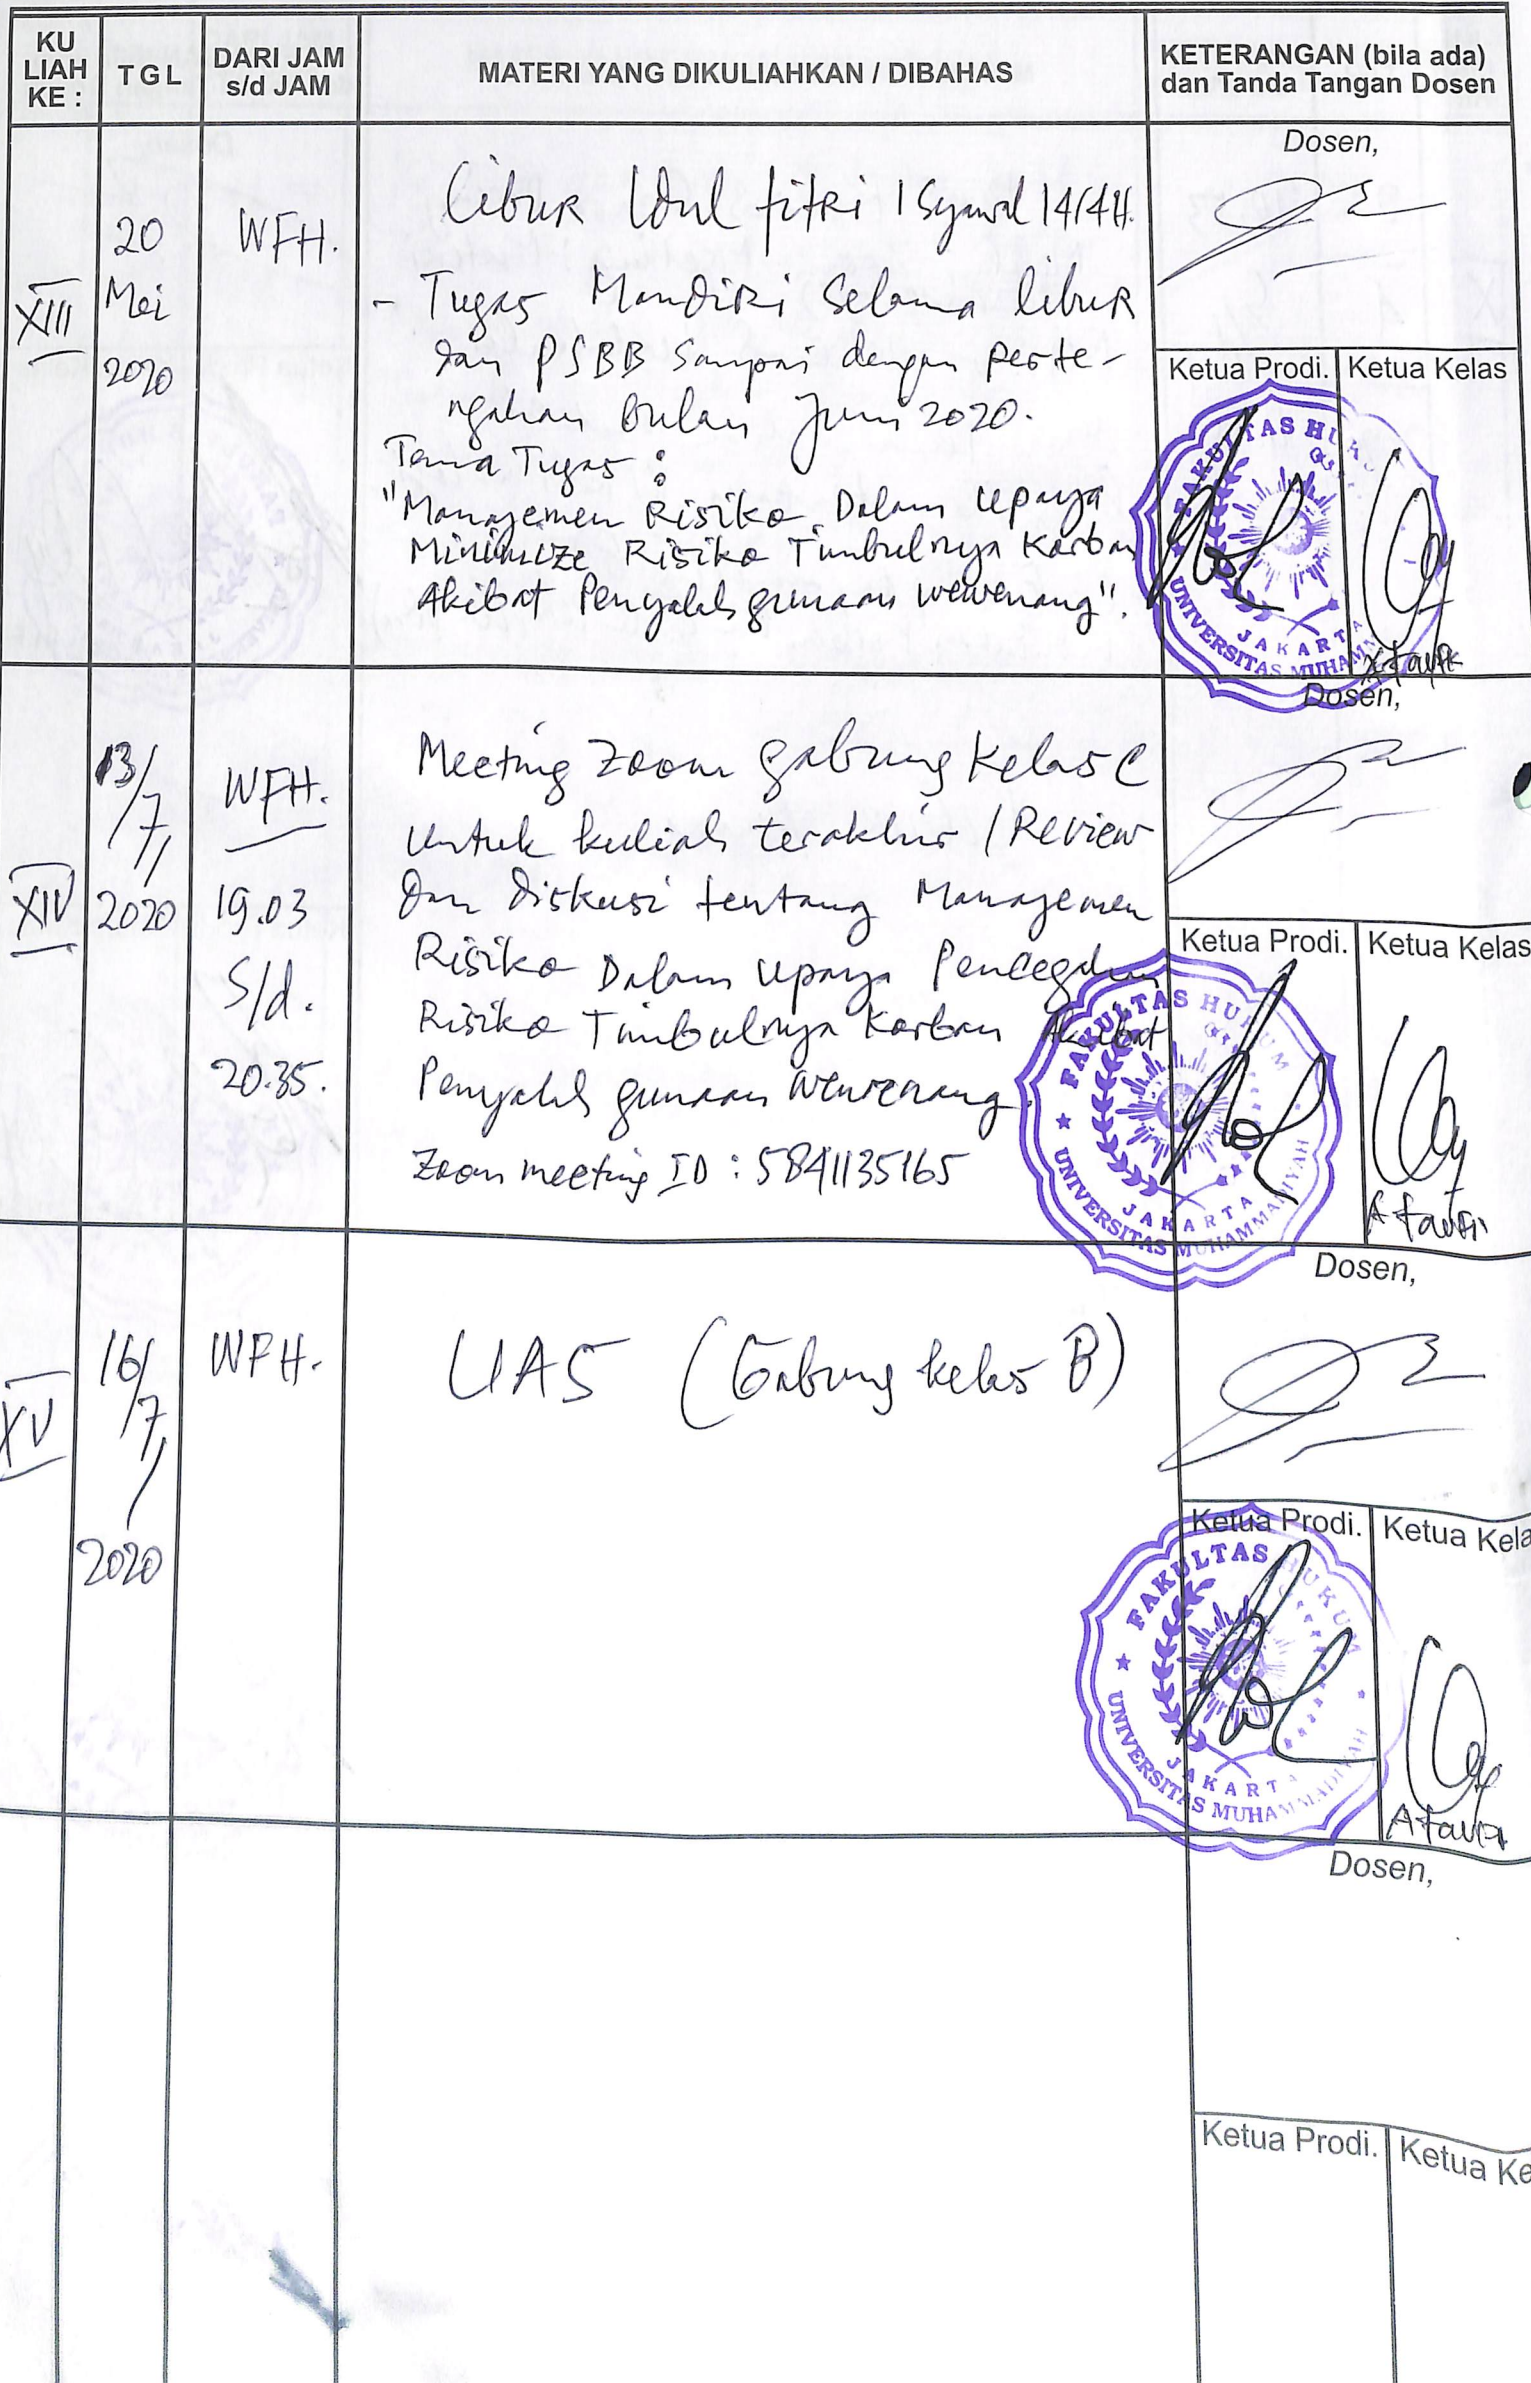 KU LIAH KE :
TGL
DARI JAM s/d JAM
MATERI YANG DIKULIAHKAN / DIBAHAS
KETERANGAN (bila ada) dan Tanda Tangan Dosen
XIII
20
Mei
2020
WFH.
Libur Idul fitri 1 Syawal 1414H.
- Tugas Mandiri Selama libur
dan PSBB Sampai dengan perte-
ngahan bulan Juni 2020.
Tema Tugas :
"Manajemen Risiko Dalam Upaya
Minimize Risiko Timbulnya Korban
Akibat Penyalahgunaan wewenang".
Dosen,
Ketua Prodi.
Ketua Kelas
FAKULTAS HUKUM
JAKARTA
UNIVERSITAS MUHAMM
XIV
13/7/
2020
WFH.
19.03
S/d.
20.35.
Meeting Zoom gabung Kelas C
Untuk kuliah terakhir / Review
dan diskusi tentang Manajemen
Risiko Dalam Upaya Pencegahan
Risiko Timbulnya Korban Akibat
Penyalah gunaan Wewenang.
Zoom meeting ID : 5841135165
Dosen,
Ketua Prodi.
Ketua Kelas
FAKULTAS HUKUM
JAKARTA
UNIVERSITAS MUHAMMADIYAH
XV
16/7/
2020
WFH.
UAS (Gabung kelas B)
Dosen,
Ketua Prodi.
Ketua Kela
FAKULTAS HUKUM
JAKARTA
UNIVERSITAS MUHAMMADIYAH
Dosen,
Ketua Prodi.
Ketua Ke